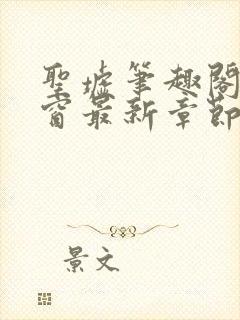 聖墟筆趣閣
窗最新章節
景文